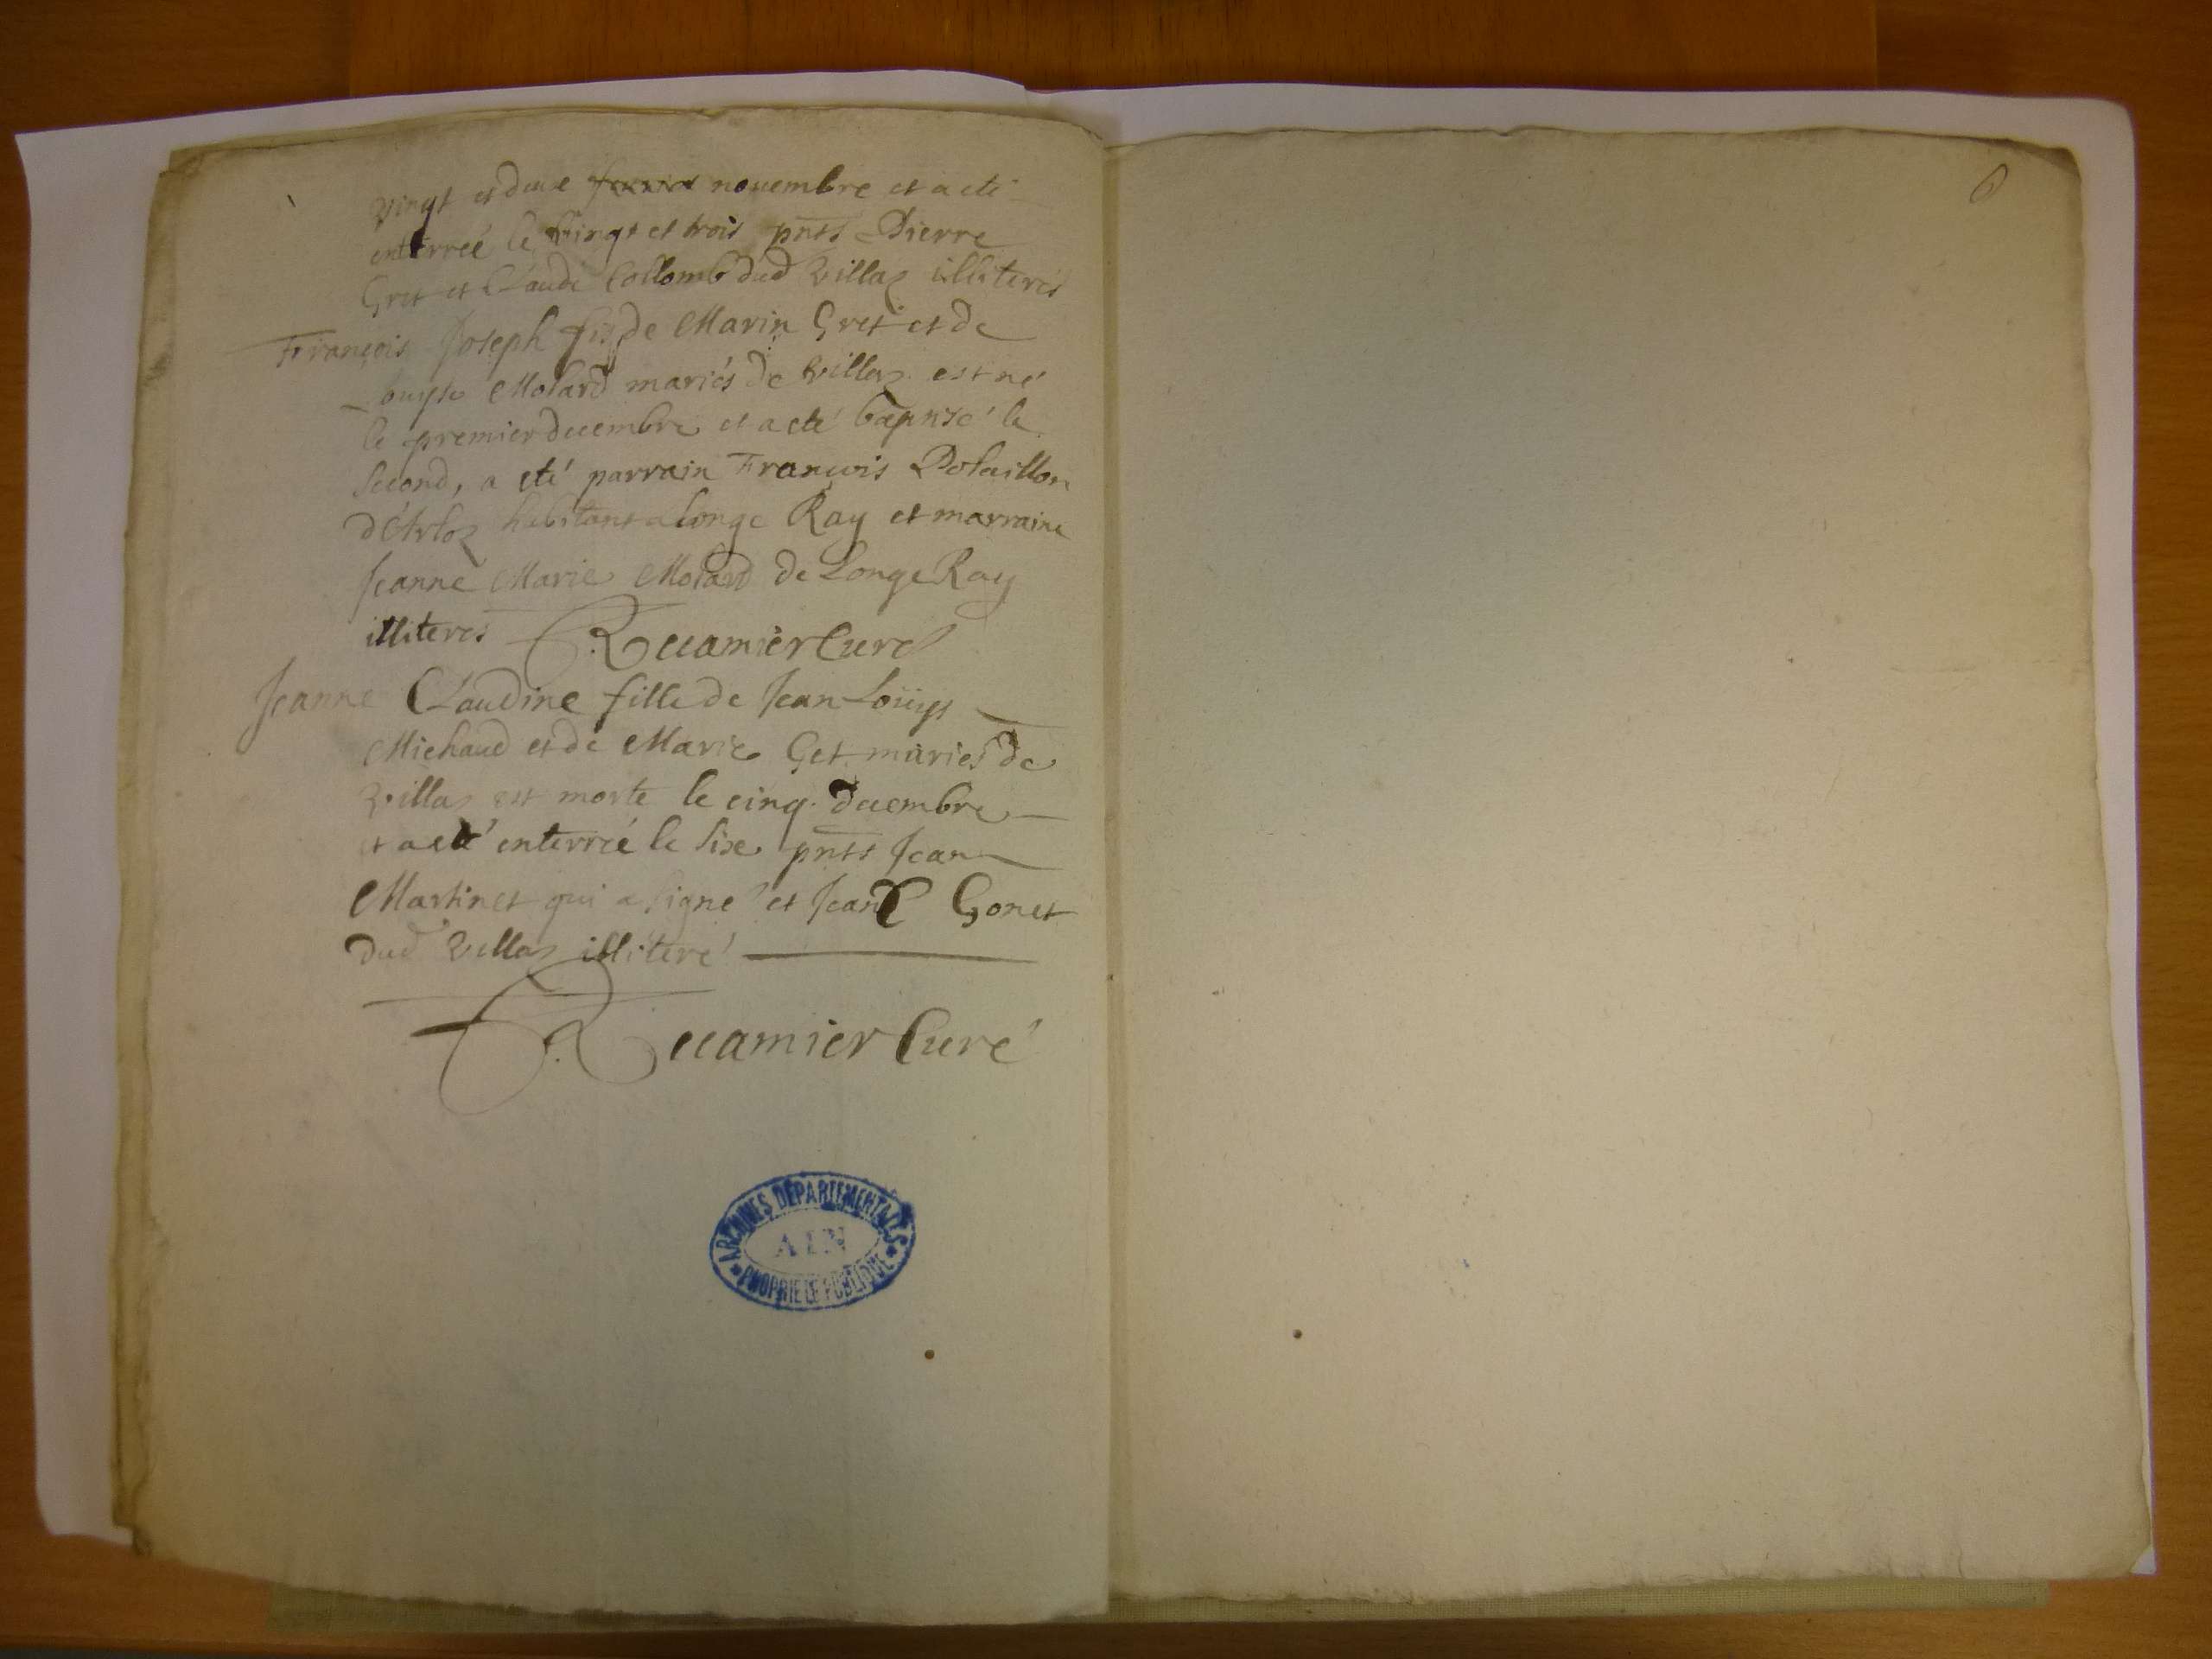 vingt et deux novembre et a eté
enterreé le vingt et trois pnts Pierre
Gret et Claude Collomb dud Villas illiterés
François Joseph fils de Marin Gret et de
Louyse Molard mariés de Villas est né
le premier decembre et a eté baptisé le
second, a eté parrain François Polaillon
d'Arlos habitant a Longe Ray et marraine
Jeanne Marie Molard de Longe Ray
illiteres Recamier Curé
Jeanne Claudine fille de Jean Loüys
Michaud et de Marie Get mariés de
Villas est morte le cinq decembre
et a eté enterreé le sixe pnts Jean
Martinet qui a signé et Jean Gonet
dud Villas illiteré
Recamier Curé
ARCHIVES DEPARTEMENTALES
AIN
PROPRIETE PUBLIQUE
6